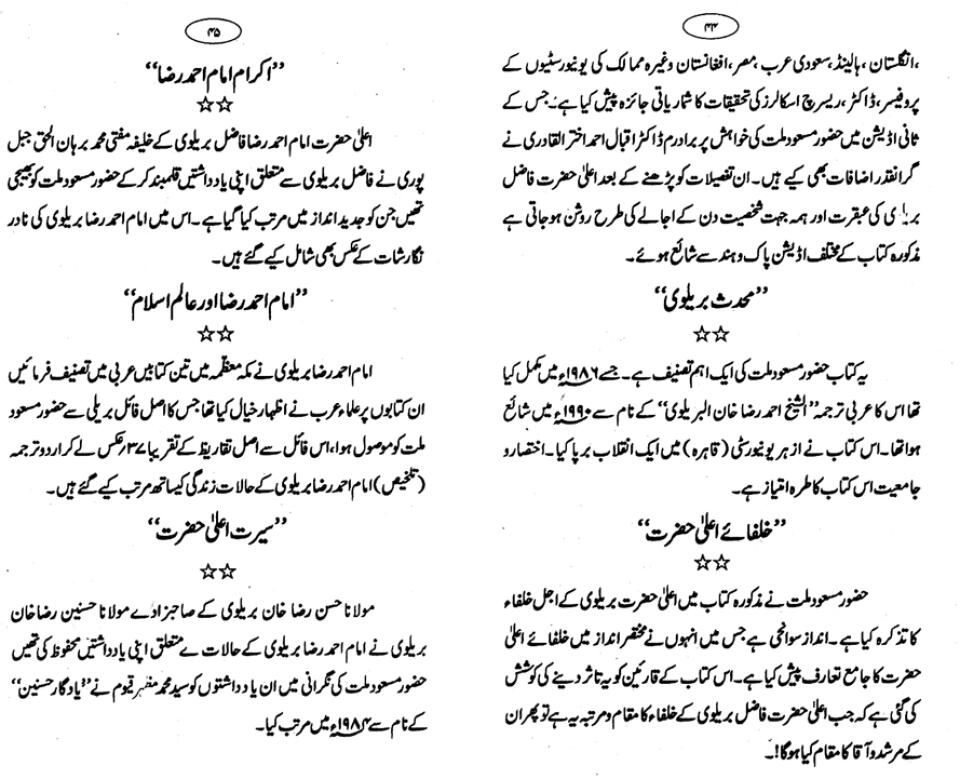 ۴۴
،انگلستان ، ہالینڈ، سعودی عرب، مصر، افغانستان وغیرہ ممالک کی یونیورسٹیوں کے
پروفیسر، ڈاکٹر، ریسرچ اسکالرز کی تحقیقات کا شماریاتی جائزہ پیش کیا ہے۔ جس کے
ثانی اڈیشن میں حضور مسعود ملت کی خواہش پر برادرم ڈاکٹر اقبال احمد اختر القادری نے
گرانقدر اضافات بھی کیے ہیں۔ ان تفصیلات کو پڑھنے کے بعد اعلیٰ حضرت فاضل
کی عبقرت اور ہمہ جہت شخصیت دن کے اجالے کی طرح روشن ہوجاتی ہے
مذکورہ کتاب کے مختلف اڈیشن پاک وہند سے شائع ہوئے۔
”محدث بریلوی“
☆☆
یہ کتاب حضور مسعود ملت کی ایک اہم تصنیف ہے۔ جسے ۱۹۸۶ء میں مکمل کیا
تھا اس کا عربی ترجمہ ”الشیخ احمد رضا خان البریلوی“ کے نام سے ۱۹۹۰ء میں شائع
ہوا تھا۔ اس کتاب نے ازہر یونیورسٹی (قاہرہ) میں ایک انقلاب برپا کیا۔ اختصار و
جامعیت اس کتاب کا طرہ امتیاز ہے۔
”خلفائے اعلیٰ حضرت“
☆☆
حضور مسعود ملت نے مذکورہ کتاب میں اعلیٰ حضرت بریلوی کے اجل خلفاء
کا تذکرہ کیا ہے۔ انداز سوانحی ہے جس میں انہوں نے مختصر انداز میں خلفائے اعلیٰ
حضرت کا جامع تعارف پیش کیا ہے۔ اس کتاب کے قارئین کو یہ تاثر دینے کی کوشش
کی گئی ہے کہ جب اعلیٰ حضرت فاضل بریلوی کے خلفاء کا مقام و مرتبہ یہ ہے تو پھر ان
کے مرشد و آقا کا مقام کیا ہوگا!۔
۴۵
”اکرام امام احمد رضا“
☆☆
اعلیٰ حضرت امام احمد رضا فاضل بریلوی کے خلیفہ مفتی محمد برہان الحق جبل
پوری نے فاضل بریلوی سے متعلق اپنی یادداشتیں قلمبند کرکے حضور مسعود ملت کو بھیجی
تھیں جن کو جدید انداز میں مرتب کیا گیا ہے۔ اس میں امام احمد رضا بریلوی کی نادر
نگارشات کے عکس بھی شامل کیے گئے ہیں۔
”امام احمد رضا اور عالم اسلام“
☆☆
امام احمد رضا بریلوی نے مکہ معظمہ میں تین کتابیں عربی میں تصنیف فرمائیں
ان کتابوں پر علماء عرب نے اظہار خیال کیا تھا جس کا اصل فائل بریلی سے حضور مسعود
ملت کو موصول ہوا، اس فائل سے اصل تقاریظ کے تقریبا ۳۷ عکس لے کر اردو ترجمہ
(تلخیص) امام احمد رضا بریلوی کے حالات زندگی کیساتھ مرتب کیے گئے ہیں۔
”سیرت اعلیٰ حضرت“
☆☆
مولانا حسن رضا خان بریلوی کے صاحبزادے مولانا حسنین رضا خان
بریلوی نے امام احمد رضا بریلوی کے حالات متعلق اپنی یادداشتیں محفوظ کی تھیں
حضور مسعود ملت کی نگرانی میں ان یادداشتوں کو سید محمد مظہر قیوم نے ”یادگار حسنین“
کے نام سے ۱۹۸۴ء میں مرتب کیا۔